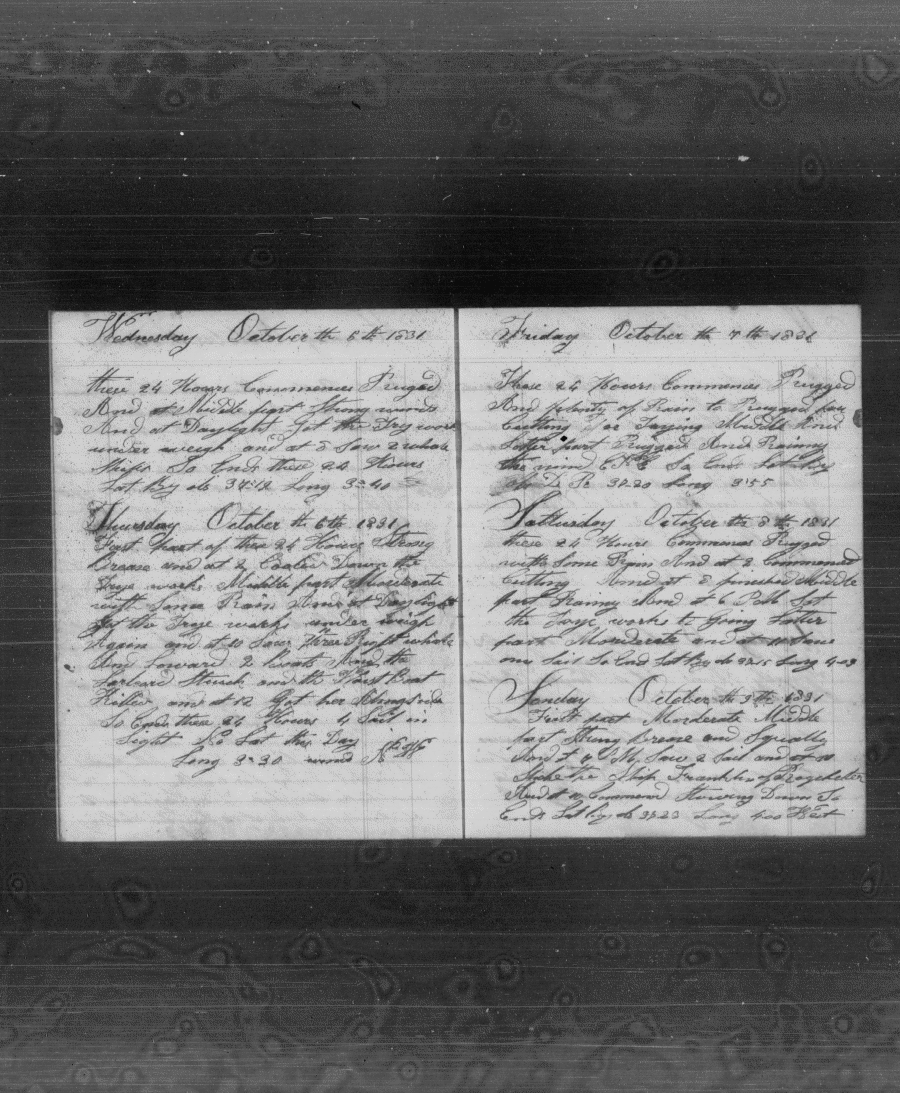 Wednesday October th 5 th 1831
these 24 Hours Commences Rugged
And at Middle part Strong winds
And at Daylight Got the Try works
under weigh and at 8 Saw 2 whale
Ships So Ends these 24 Hours
Lat By ob 34:12 Long 3=40
Thursday October th 6th 1831
First part of these 24 Hours Strong
Brease and at 2 Cooled Down the
Trye works Middle part Moderate
with Some Rain And at Daylight
got the Trye works under weigh
Again and at 10 Saw three Right whale
And Loward 2 Boats And the
Larbard Struck and the Waist Boat
Killed and at 12 Got her Along side
So Ends these 24 Hours 4 Sail in
Sight No Lat this Day
Long 3=30 wind
Friday October th 7 th 1831
These 24 Hours Commences Rugged
And plenty of Rain to Rugged for
Cutting for Laying Middle And
Latter part Rugged And Rainny
the wind So Ends Lat By
ob 34.20 Long 3'55
Satturday October th 8 th 1831
these 24 Hours Commences Rugged
with Some Rain And at 2 Commenced
Cutting And at 5 finished Middle
part Rainny And at 6 PM Got
the Trye works to Going Latter
part Morderate and at 11 Saw
one Sail So End Lat By ob Long 4=03
Sunday October th 9 th 1831
First part Morderate Middle
part Strong Brease and Squally
And at 4 PM Saw 2 Sail and at
Spoke the Ship Franklin of
And at Commenced Stowing Down So
Ends Lat By ob 34.23 Long 4.00 West